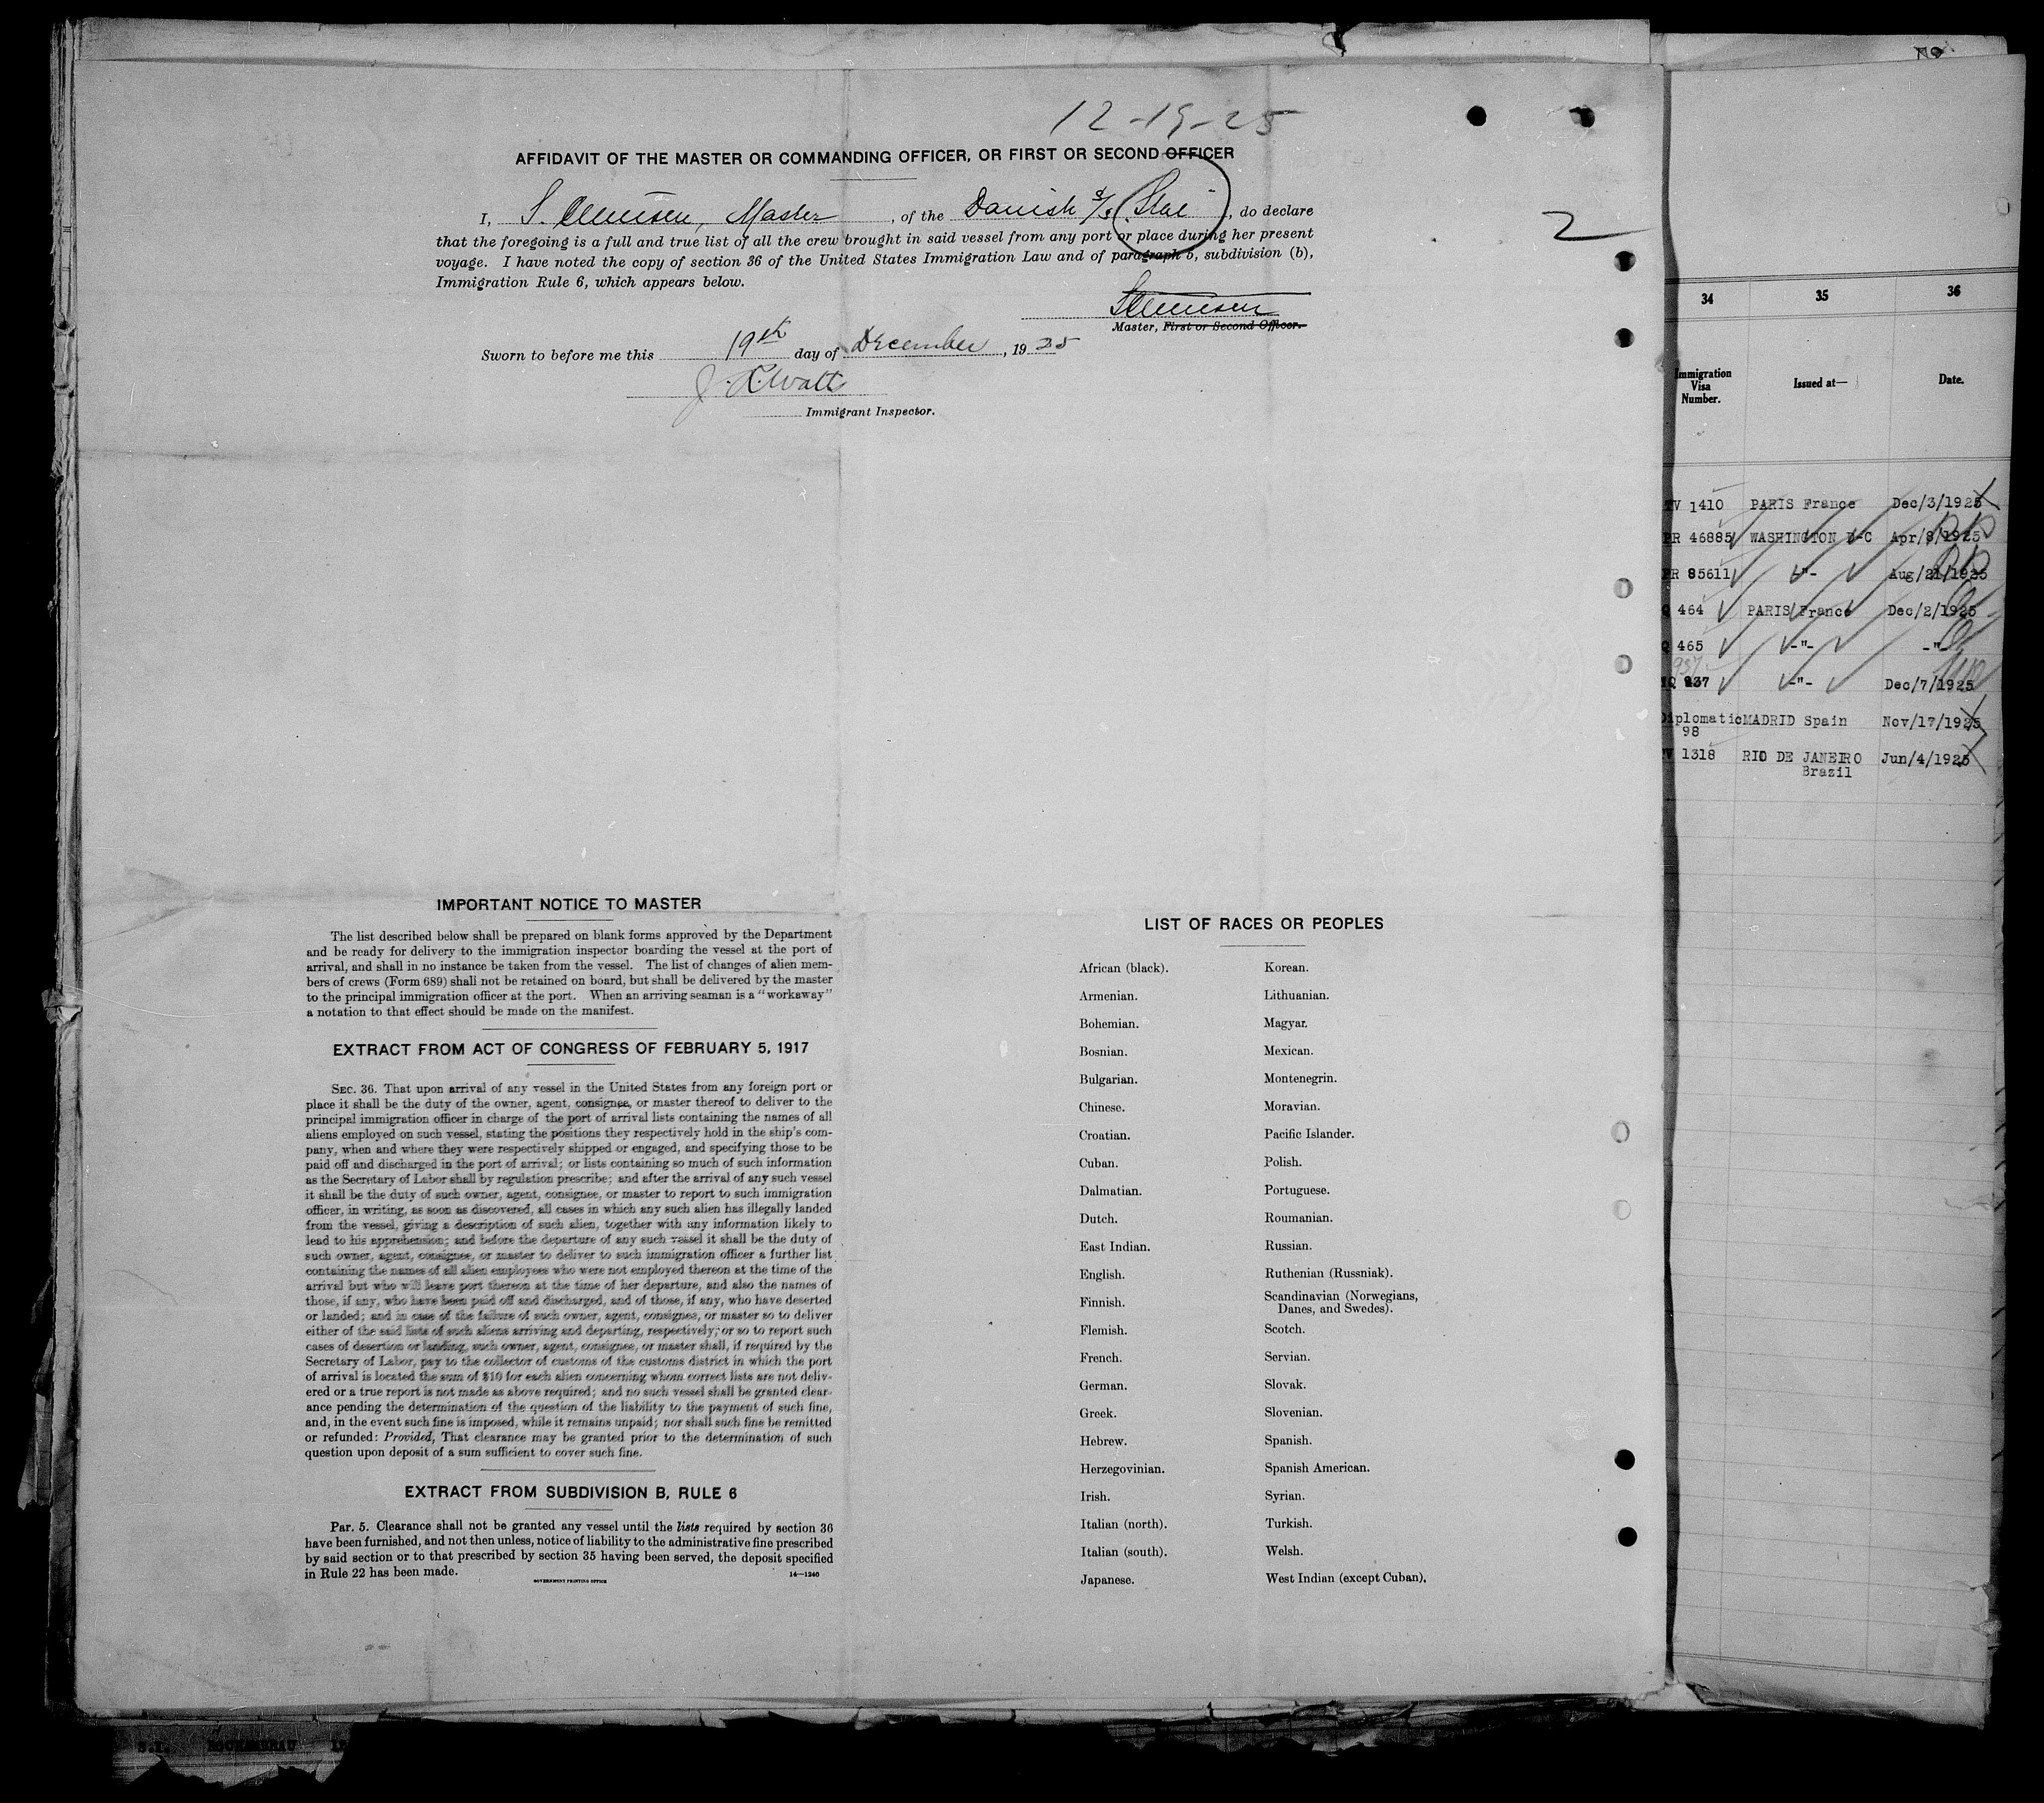 12-19-25
AFFIDAVIT OF THE MASTER OR COMMANDING OFFICER, OR FIRST OR SECOND OFFICER
I, S. Clemmsen, Master, of the Danish S/S, do declare
that the foregoing is a full and true list of all the crew brought in said vessel from any port or place during her present
voyage. I have noted the copy of section 36 of the United States Immigration Law and of paragraph 5, subdivision (b),
Immigration Rule 6, which appears below.
2
Master, First or Second Officer.
Sworn to before me this 19th day of December, 1925
J. L. Watt
Immigrant Inspector.
IMPORTANT NOTICE TO MASTER
The list described below shall be prepared on blank forms approved by the Department
and be ready for delivery to the immigration inspector boarding the vessel at the port of
arrival, and shall in no instance be taken from the vessel. The list of changes of alien mem-
bers of crews (Form 689) shall not be retained on board, but shall be delivered by the master
to the principal immigration officer at the port. When an arriving seaman is a "workaway"
a notation to that effect should be made on the manifest.
EXTRACT FROM ACT OF CONGRESS OF FEBRUARY 5, 1917
SEC. 36. That upon arrival of any vessel in the United States from any foreign port or
place it shall be the duty of the owner, agent, consignee, or master thereof to deliver to the
principal immigration officer in charge of the port of arrival lists containing the names of all
aliens employed on such vessel, stating the positions they respectively hold in the ship's com-
pany, when and where they were respectively shipped or engaged, and specifying those to be
paid off and discharged in the port of arrival; or lists containing so much of such information
as the Secretary of Labor shall by regulation prescribe; and after the arrival of any such vessel
it shall be the duty of such owner, agent, consignee, or master to report to such immigration
officer, in writing, as soon as discovered, all cases in which any such alien has illegally landed
from the vessel, giving a description of such alien, together with any information likely to
lead to his apprehension; and before the departure of any such vessel it shall be the duty of
such owner, agent, consignee, or master to deliver to such immigration officer a further list
containing the names of all alien employees who were not employed thereon at the time of the
arrival but who will leave port thereon at the time of her departure, and also the names of
those, if any, who have been paid off and discharged, and of those, if any, who have deserted
or landed; and in case of the failure of such owner, agent, consignee, or master so to deliver
either of the said lists of such aliens arriving and departing, respectively, or so to report such
cases of desertion or landing, such owner, agent, consignee, or master shall, if required by the
Secretary of Labor, pay to the collector of customs of the customs district in which the port
of arrival is located the sum of $10 for each alien concerning whom correct lists are not deliv-
ered or a true report is not made as above required; and no such vessel shall be granted clear-
ance pending the determination of the question of the liability to the payment of such fine,
and, in the event such fine is imposed, while it remains unpaid; nor shall such fine be remitted
or refunded: Provided, That clearance may be granted prior to the determination of such
question upon deposit of a sum sufficient to cover such fine.
EXTRACT FROM SUBDIVISION B, RULE 6
Par. 5. Clearance shall not be granted any vessel until the lists required by section 36
have been furnished, and not then unless, notice of liability to the administrative fine prescribed
by said section or to that prescribed by section 35 having been served, the deposit specified
in Rule 22 has been made.
GOVERNMENT PRINTING OFFICE 14—1240
LIST OF RACES OR PEOPLES
African (black). Korean.
Armenian. Lithuanian.
Bohemian. Magyar.
Bosnian. Mexican.
Bulgarian. Montenegrin.
Chinese. Moravian.
Croatian. Pacific Islander.
Cuban. Polish.
Dalmatian. Portuguese.
Dutch. Roumanian.
East Indian. Russian.
English. Ruthenian (Russniak).
Finnish. Scandinavian (Norwegians,
Danes, and Swedes).
Flemish. Scotch.
French. Servian.
German. Slovak.
Greek. Slovenian.
Hebrew. Spanish.
Herzegovinian. Spanish American.
Irish. Syrian.
Italian (north). Turkish.
Italian (south). Welsh.
Japanese. West Indian (except Cuban).
34 35 36
Immigration
Visa
Number. Issued at— Date.
1410 PARIS France Dec/3/1925
46885 WASHINGTON D-C Apr/8/1925
85611 -"- Aug/21/1925
464 PARIS France Dec/2/1925
465 -"- -"-
937
937 -"- Dec/7/1925
Diplomatic MADRID Spain Nov/17/1925
98
1318 RIO DE JANEIRO Jun/4/1925
Brazil